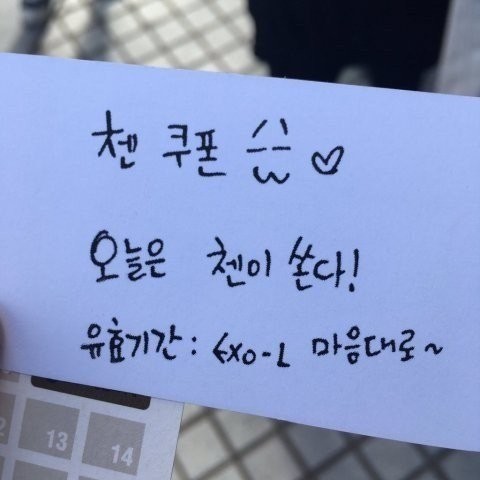 첸 쿠폰 ♡
오늘은 첸이 쏜다!
유효기간 : EXO-L 마음대로~
13
14